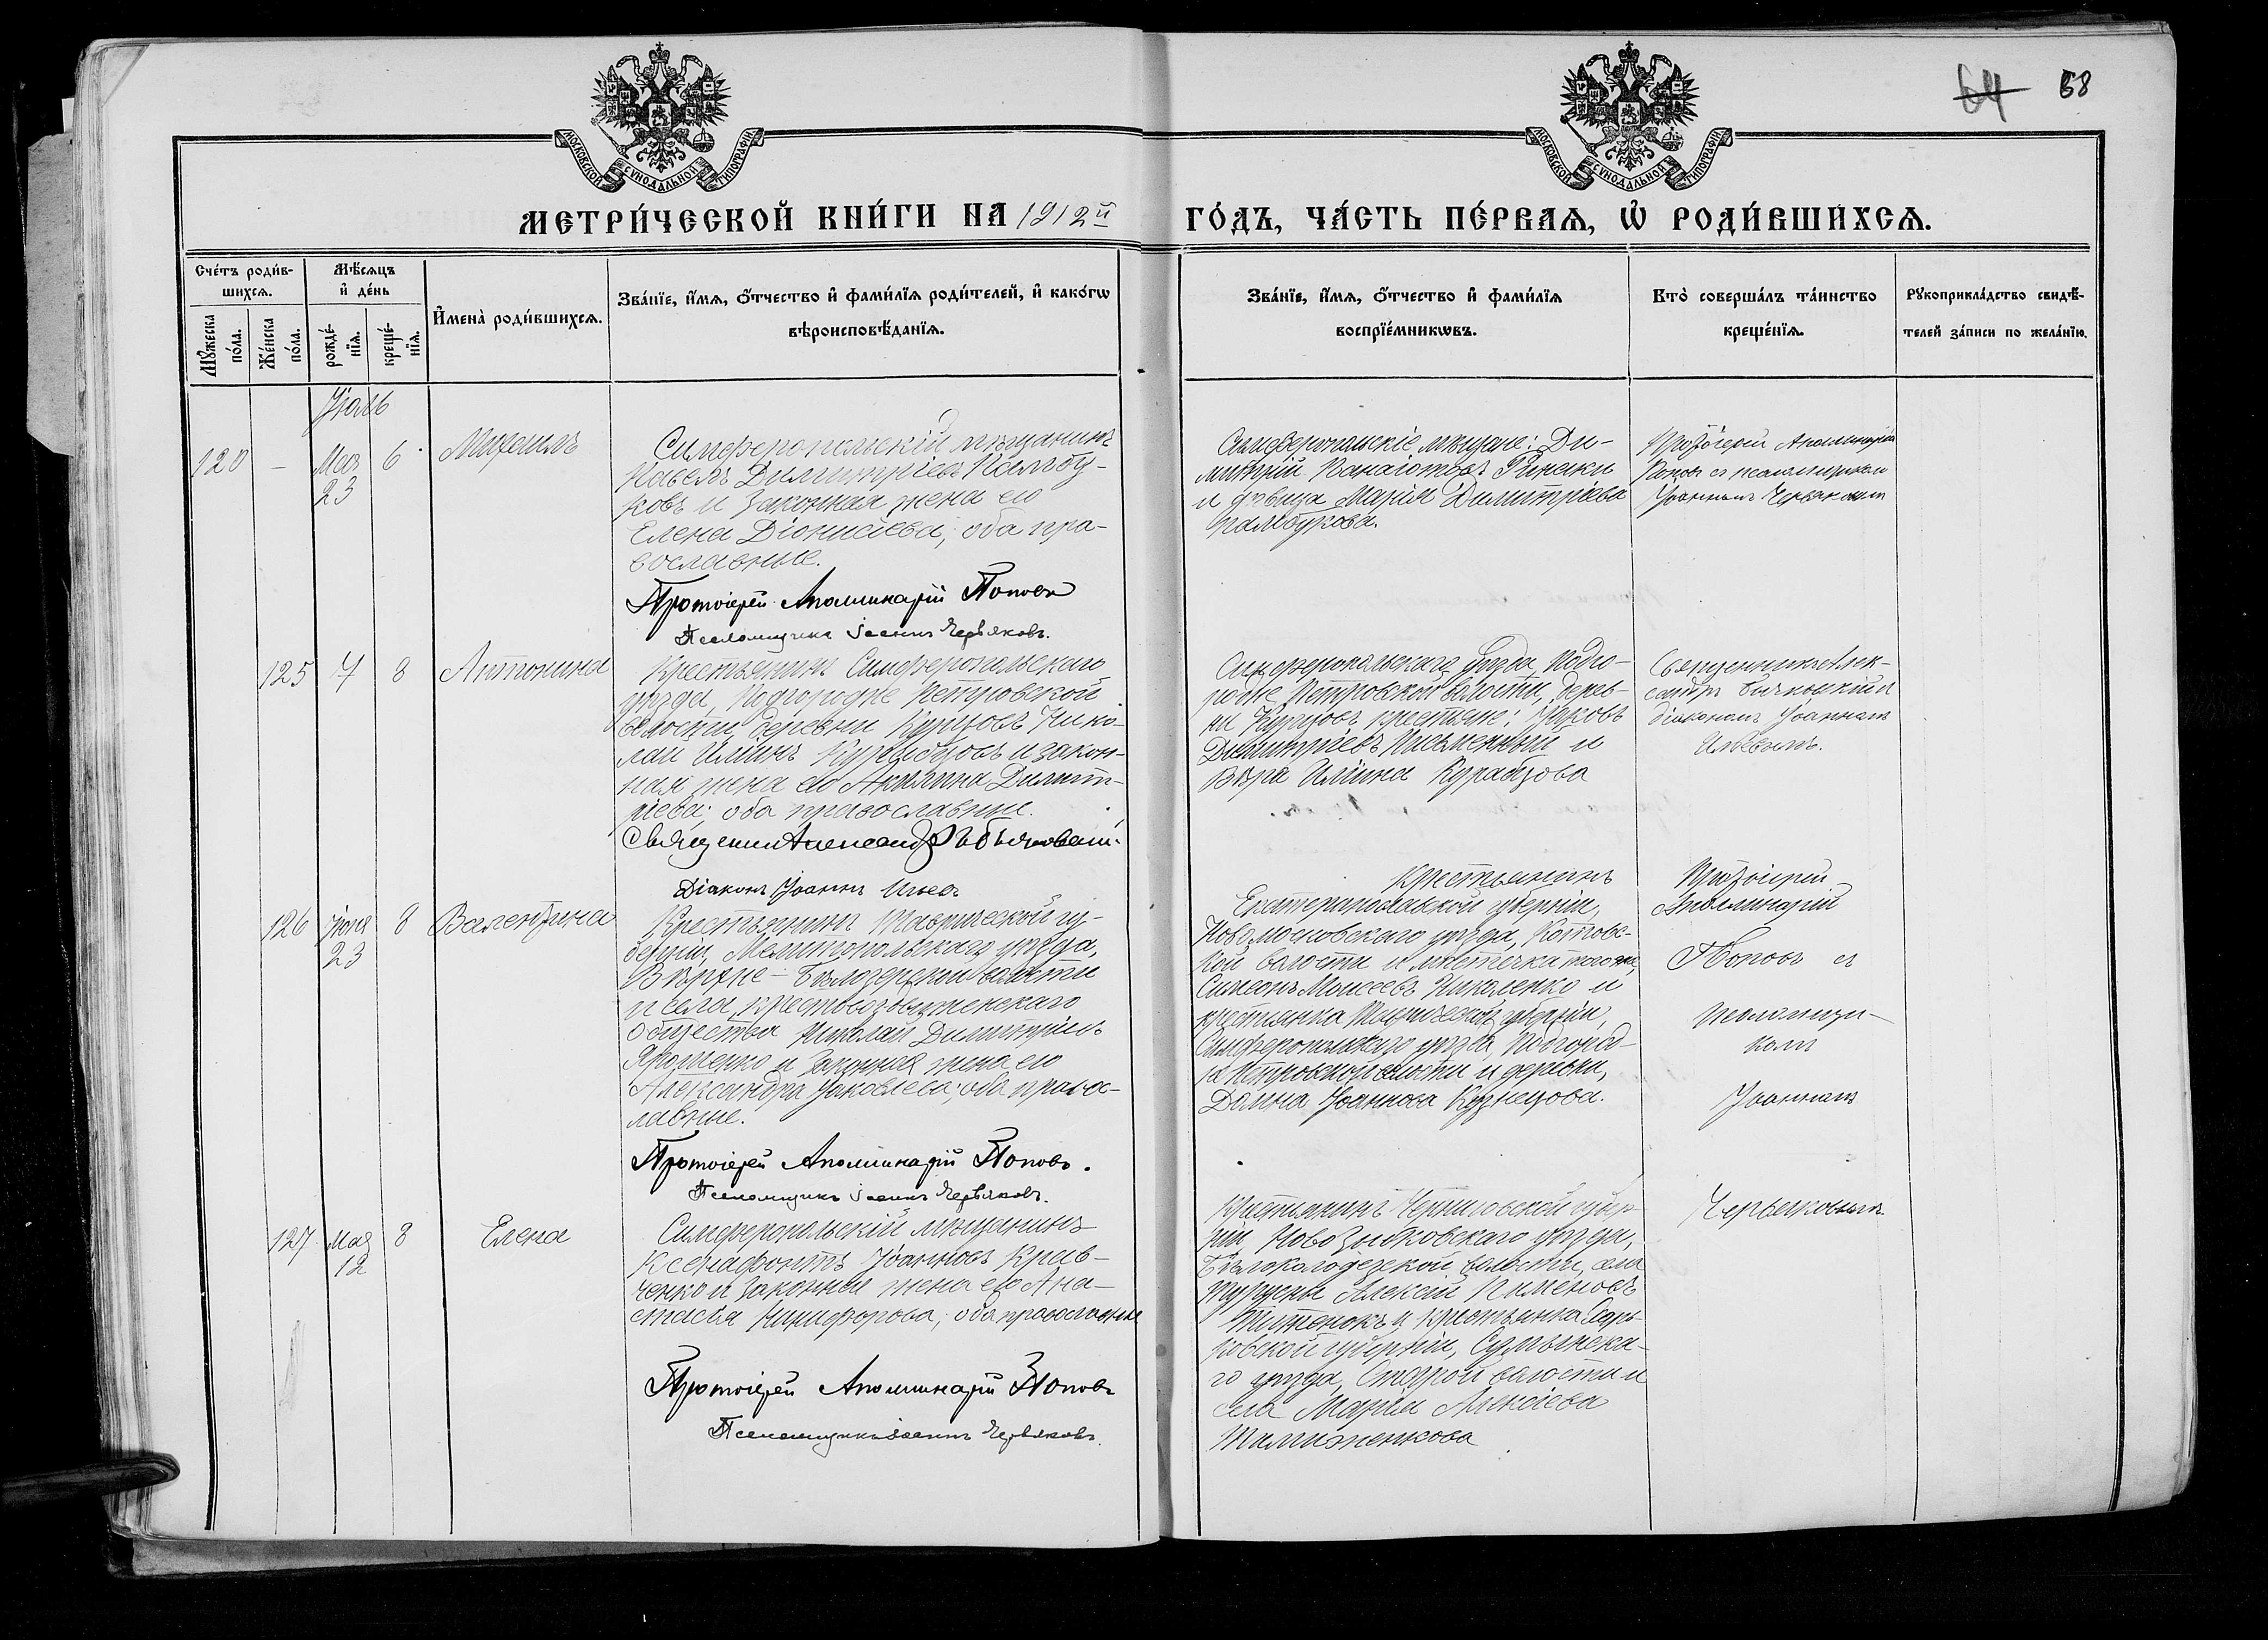 64 68
МОСКОВСКОЙ СѴНОДАЛЬНОЙ ТИПОГРАФІИ
МОСКОВСКОЙ СѴНОДАЛЬНОЙ ТИПОГРАФІИ
МЕТРИ́ЧЕСКОЙ КНИ́ГИ НА 1912й ГО́ДЪ, ЧА́СТЬ ПЕ́РВАѦ, Ѡ РОДИ́ВШИХСѦ.
Сче́тъ роди́в-
шихсѧ.
Мꙋ́жеска
по́ла.
Же́нска
по́ла.
Мѣ́сѧцъ
и҆ де́нь
рожде́-
нїѧ.
креще́-
нїѧ.
И҆мена̀ роди́вшихсѧ.
Зва́нїе, и҆́мѧ, ѻ҆́тчество и҆ фами́лїѧ роди́телей, и҆ како́гѡ
вѣроисповѣ́данїѧ.
Зва́нїе, и҆́мѧ, ѻ҆́тчество и҆ фами́лїѧ
воспрїе́мникѡвъ.
Кто̀ соверша́лъ та́инство
креще́нїѧ.
Рꙋкоприкла́дство свидѣ́-
телей за́писи по жела́нїю.
Іюль
120 – Мая 23 6 Михаилъ
Симферопольскій мѣщанинъ
Павелъ Димитріевъ Палбу-
ковъ и законная жена его
Елена Діонисіева, оба пра-
вославные.
Протоіерей Аполлинарій Поповъ
Псаломщикъ Іоаннъ Червяковъ.
Симферопольскіе мѣщане: Ди-
митрій Панаіотовъ
и дѣвица Марія Димитріева
Палбукова.
Протоіерей Аполлинарій
Поповъ съ псаломщикомъ
Іоанномъ Червяковымъ
125 4 8 Антонина
Крестьянинъ Симферопольскаго
уѣзда, Подгородне Петровской
волости, деревни Курцовъ Нико-
лай Ильинъ и закон-
ная жена его Димит-
ріева, оба православные.
Священникъ Александръ Бычковскій.
Діаконъ Іоаннъ Ильевъ
Симферопольскаго уѣзда, Подго-
родне Петровской волости, дерев-
ни Курцовъ крестьяне: Іаковъ
Димитріевъ Письменный и
Вѣра Ильина
Священникъ Алек-
сандръ Бычковскій съ
діакономъ Іоанномъ
Ильевымъ.
126 Іюня 23 8 Валентина
Крестьянинъ Таврической гу-
берніи, Мелитопольскаго уѣзда,
Верхне-Бѣлозерской волости
и села, крестовоздвиженскаго
общества Николай Димитріевъ
Ярошенко и законная жена его
Александра Іаковлева; оба правос-
лавные.
Протоіерей Аполлинарій Поповъ.
Псаломщикъ Іоаннъ Червяковъ.
Крестьянинъ
Екатеринославской губерніи,
Новомосковскаго уѣзда, Котовс-
кой волости и мѣстечка того же,
Симеонъ Моисеевъ Николенко и
крестьянка Таврической губерніи,
Симферопольскаго уѣзда, Подгород-
не Петровской волости и деревни,
Домна Іоаннова Кузнецова.
Протоіерей
Аполлинарій
Поповъ съ
псаломщи-
комъ
Іоанномъ
Червяковымъ
127 Мая 12 8 Елена
Симферопольскій мѣщанинъ
Ксенафонтъ Іоанновъ Крав-
ченко и законная жена его Ана-
стасія Никифорова, оба православные
Протоіерей Аполлинарій Поповъ
Псаломщикъ Іоаннъ Червяковъ.
Крестьянинъ Черниговской губер-
ніи Новозыбковскаго уѣзда,
Бѣлоколодезской волости, села
Алексій Пименовъ
и крестьянка Харь-
ковской губерніи, Сумынска-
го уѣзда, волости и
села Марія Алексіева